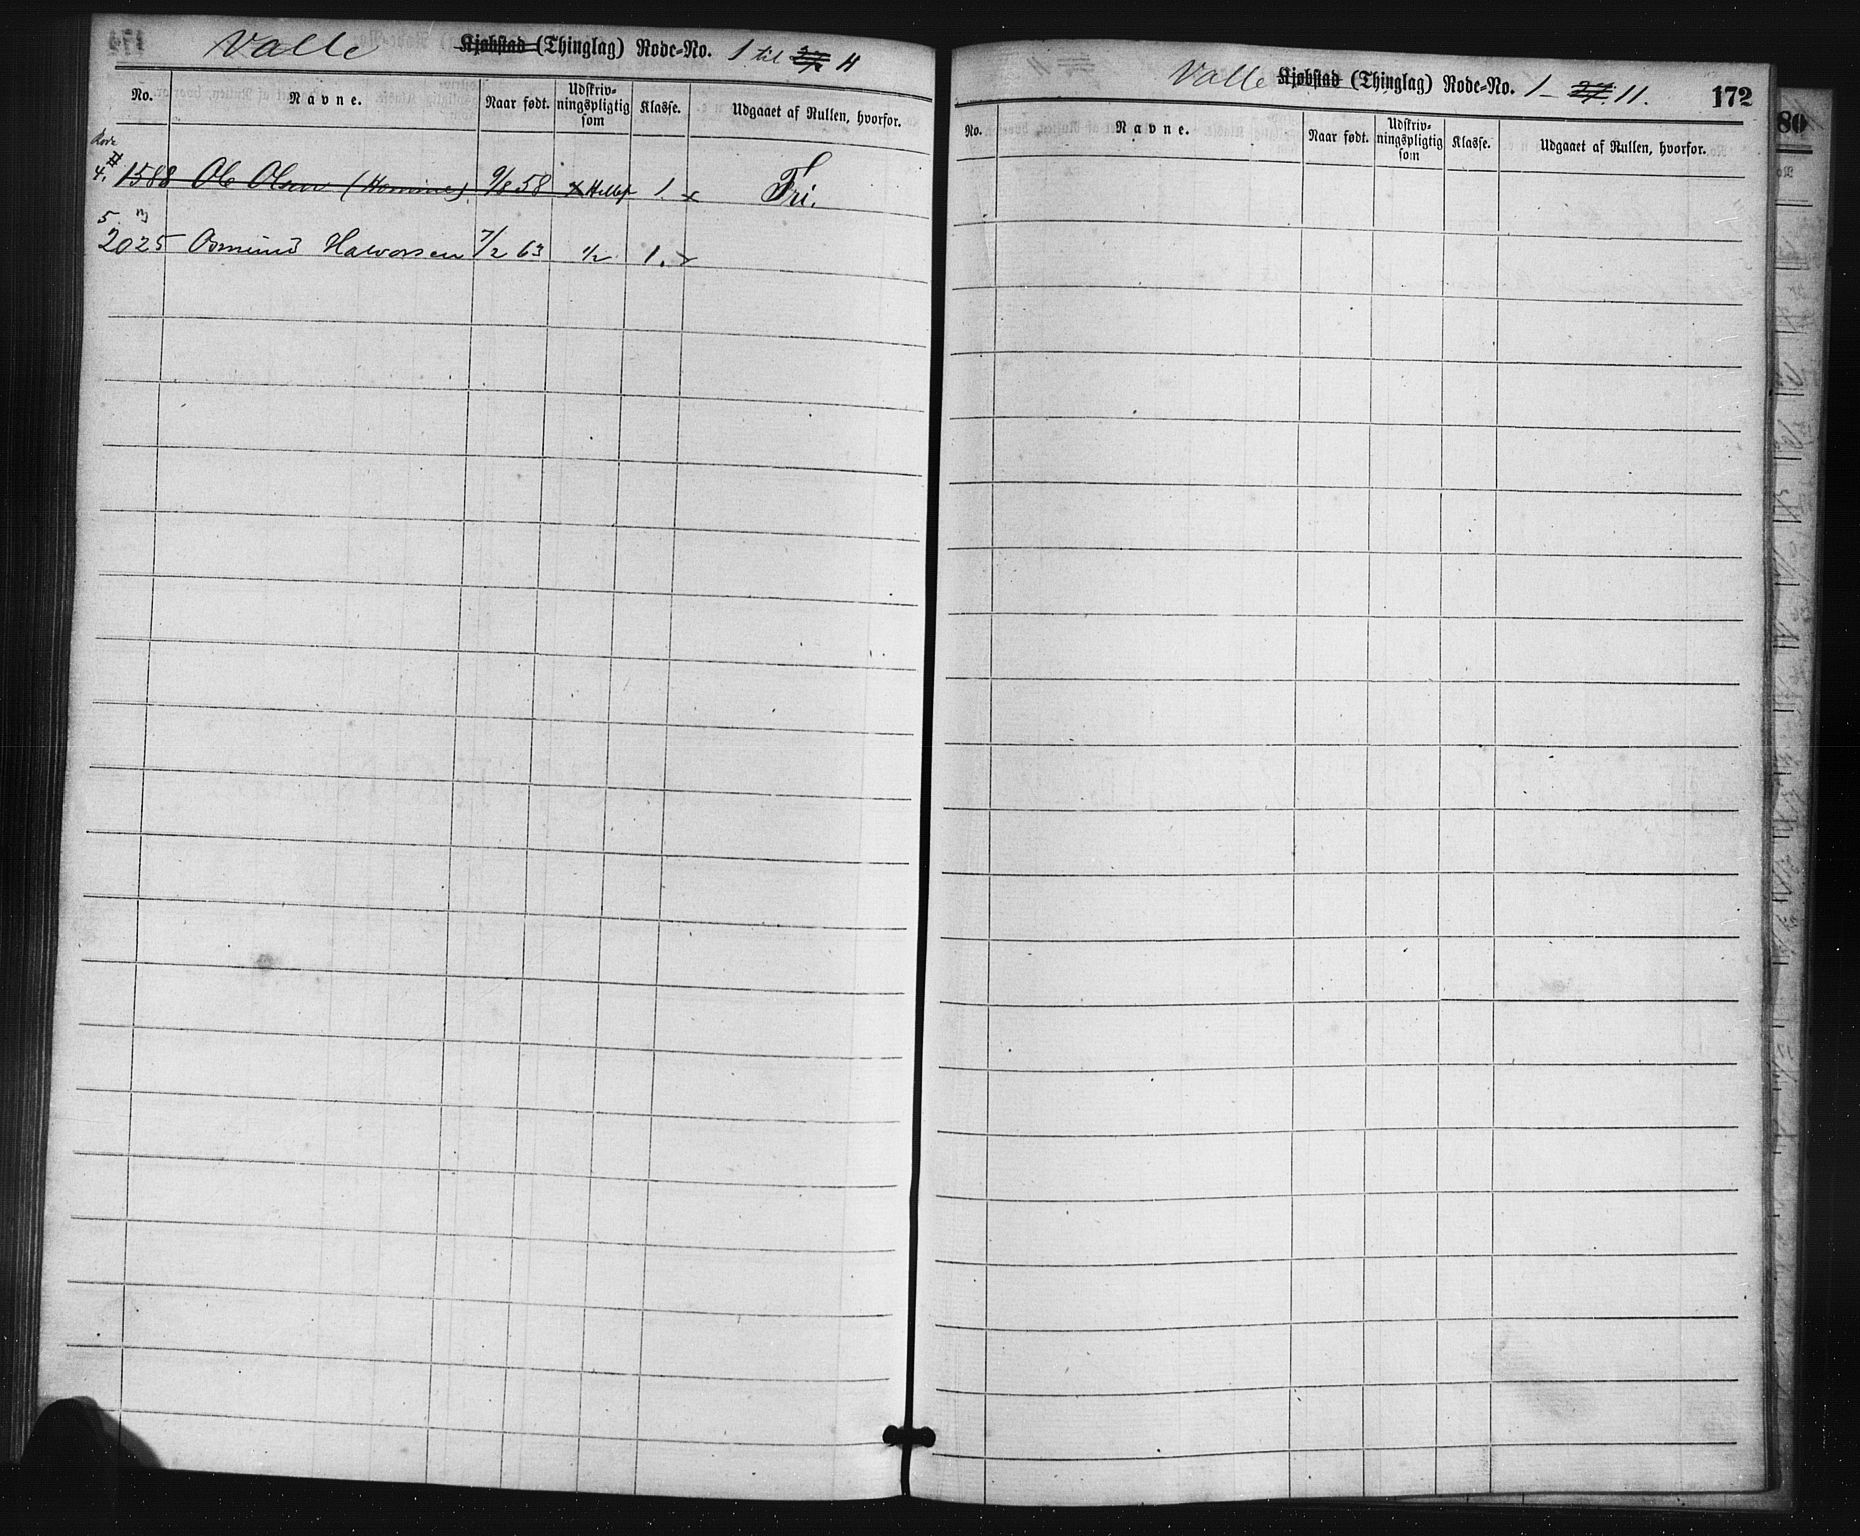 Valle Kjøbstad (Thinglag) Rode-No. 1 til 27 11
No. Navne. Naar født. Udskriv-ningspligtig som Klasse. Udgaaet af Rullen, hvorfor.
Rode
4. 1588 Ole Olsen 9/8 58 1. x Fri.
5
2025 Osmund Halvorsen 7/2 63 1/2 1. x
Valle Kjøbstad (Thinglag) Rode-No. 1 – 27. 11. 172
No. Navne. Naar født. Udskriv-ningspligtig som Klasse. Udgaaet af Rullen, hvorfor.
80